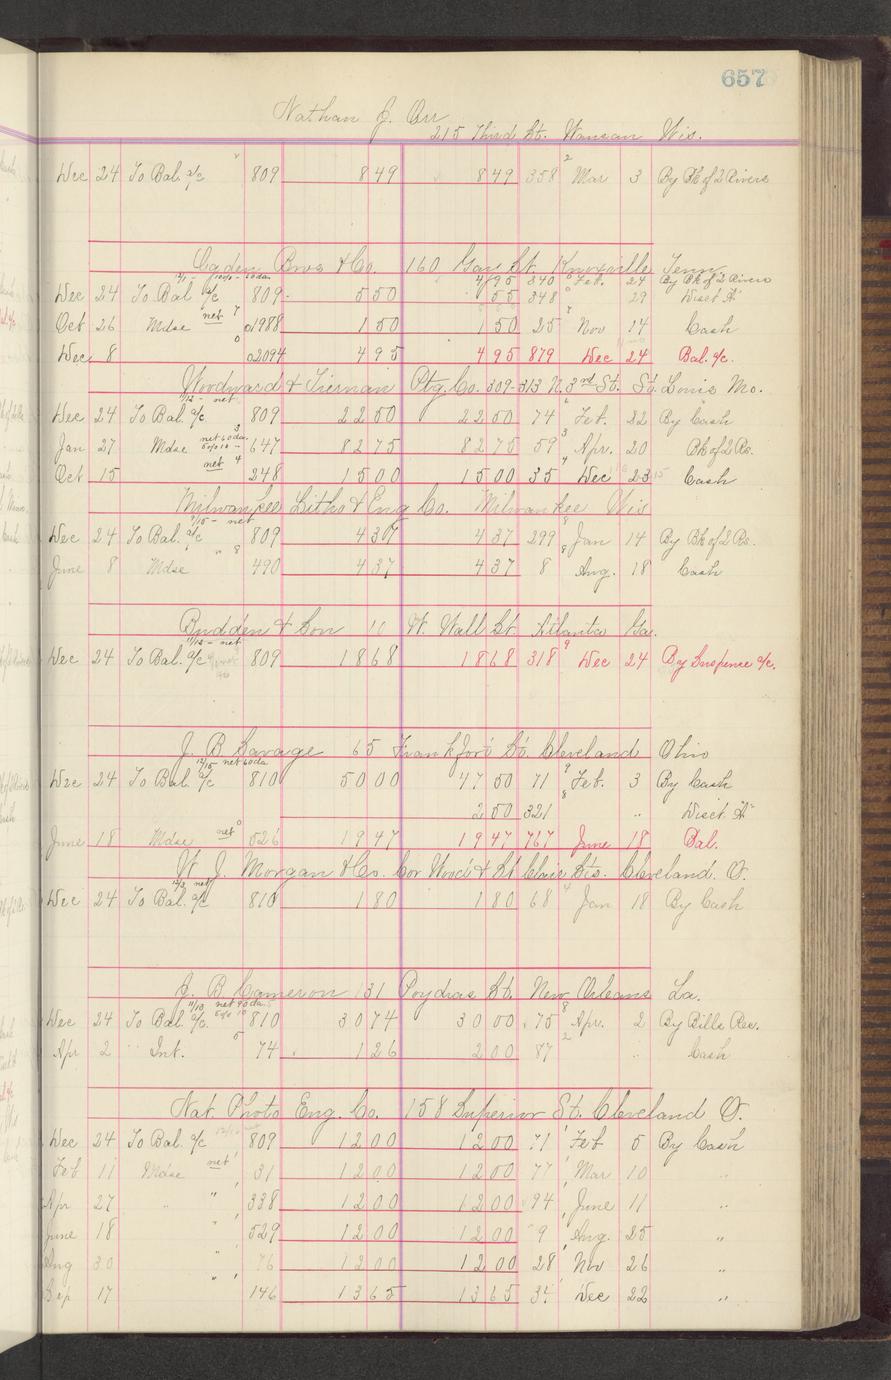 657
Nathan J. Orr
215 Third St. Wausau Wis.
Dec 24 To Bal. a/c 809 8 49 8 49 358 2 Mar 3 By Bk of 2 Rivers
Ogden Bros & Co. 160 Gay St. Knoxville Tenn
4 95 340 Feb. 24 By Bk of 2 Rivers
Dec 24 To Bal a/c 809 5 50 55 348 29 Disct "A"
Oct 26 Mdse net 7 1988 1 50 1 50 25 Nov 14 Cash
Dec 8 2094 4 95 4 95 879 Dec 24 Bal. a/c.
Woodward & Tiernan Ptg Co. 309-313 N. 3rd St. St. Louis Mo.
11/12 - net
Dec 24 To Bal a/c 809 22 50 22 50 74 Feb. 22 By Cash
Jan 27 Mdse net 60 da. 647 82 75 82 75 59 Apr. 20 Bk of 2 Rs.
Oct 15 net 4 248 15 00 15 00 35 Dec 23 Cash
Milwaukee Litho & Eng Co. Milwaukee Wis
9/15 - net
Dec 24 To Bal. a/c 809 4 37 4 37 299 8 Jan 14 By Bk of 2 Rs.
June 8 Mdse " 8 490 4 37 4 37 8 8 Aug. 18 Cash
Budden & Son 11 W. Wall St. Atlanta Ga.
11/12 - net
Dec 24 To Bal. a/c 809 18 68 18 68 318 9 Dec 24 By Suspence a/c.
J. B Savage 65 Frankfort St. Cleveland Ohio
12/15 net 60 da
Dec 24 To Bal a/c 810 50 00 47 50 71 9 Feb. 3 By Cash
2 50 321 8 " Disct "A"
June 18 Mdse net 0 526 19 47 19 47 767 June 18 Bal.
W. J. Morgan & Co. Cor Wood & St Clair Sts. Cleveland. O.
12/3 net
Dec 24 To Bal. a/c 810 1 80 1 80 68 4 Jan 18 By Cash
J. B Cameron 131 Poydras St. New Orleans La.
11/10 net 90 da.
Dec 24 To Bal. a/c. 810 30 74 30 00 75 8 Apr. 2 By Bills Rec.
Apr 2 " Int. 5 74 1 26 2 00 87 2 " Cash
Nat. Photo Eng. Co. 158 Superior St. Cleveland O.
Dec 24 To Bal a/c 809 12 00 12 00 71 Feb 5 By Cash
Feb 11 Mdse net 31 12 00 12 00 77 Mar 10 "
Apr 27 " " 338 12 00 12 00 94 June 11 "
June 18 " 529 12 00 12 00 9 Aug. 25 "
Aug 30 " 76 12 00 12 00 28 Nov 26 "
Sep 17 " 146 13 65 13 65 34 Dec 22 "